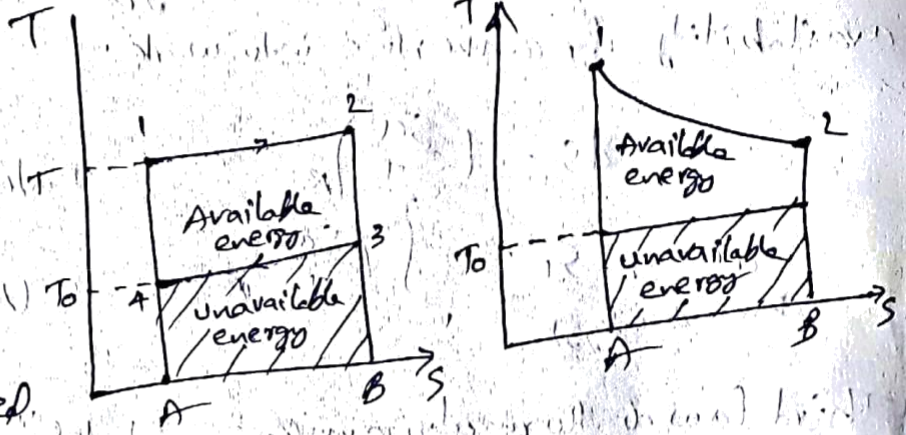 T
1
2
T
Available
energy
3
To
4
unavailable
energy
A
B
S
T
1
2
Available
energy
To
unavailable
energy
A
B
S